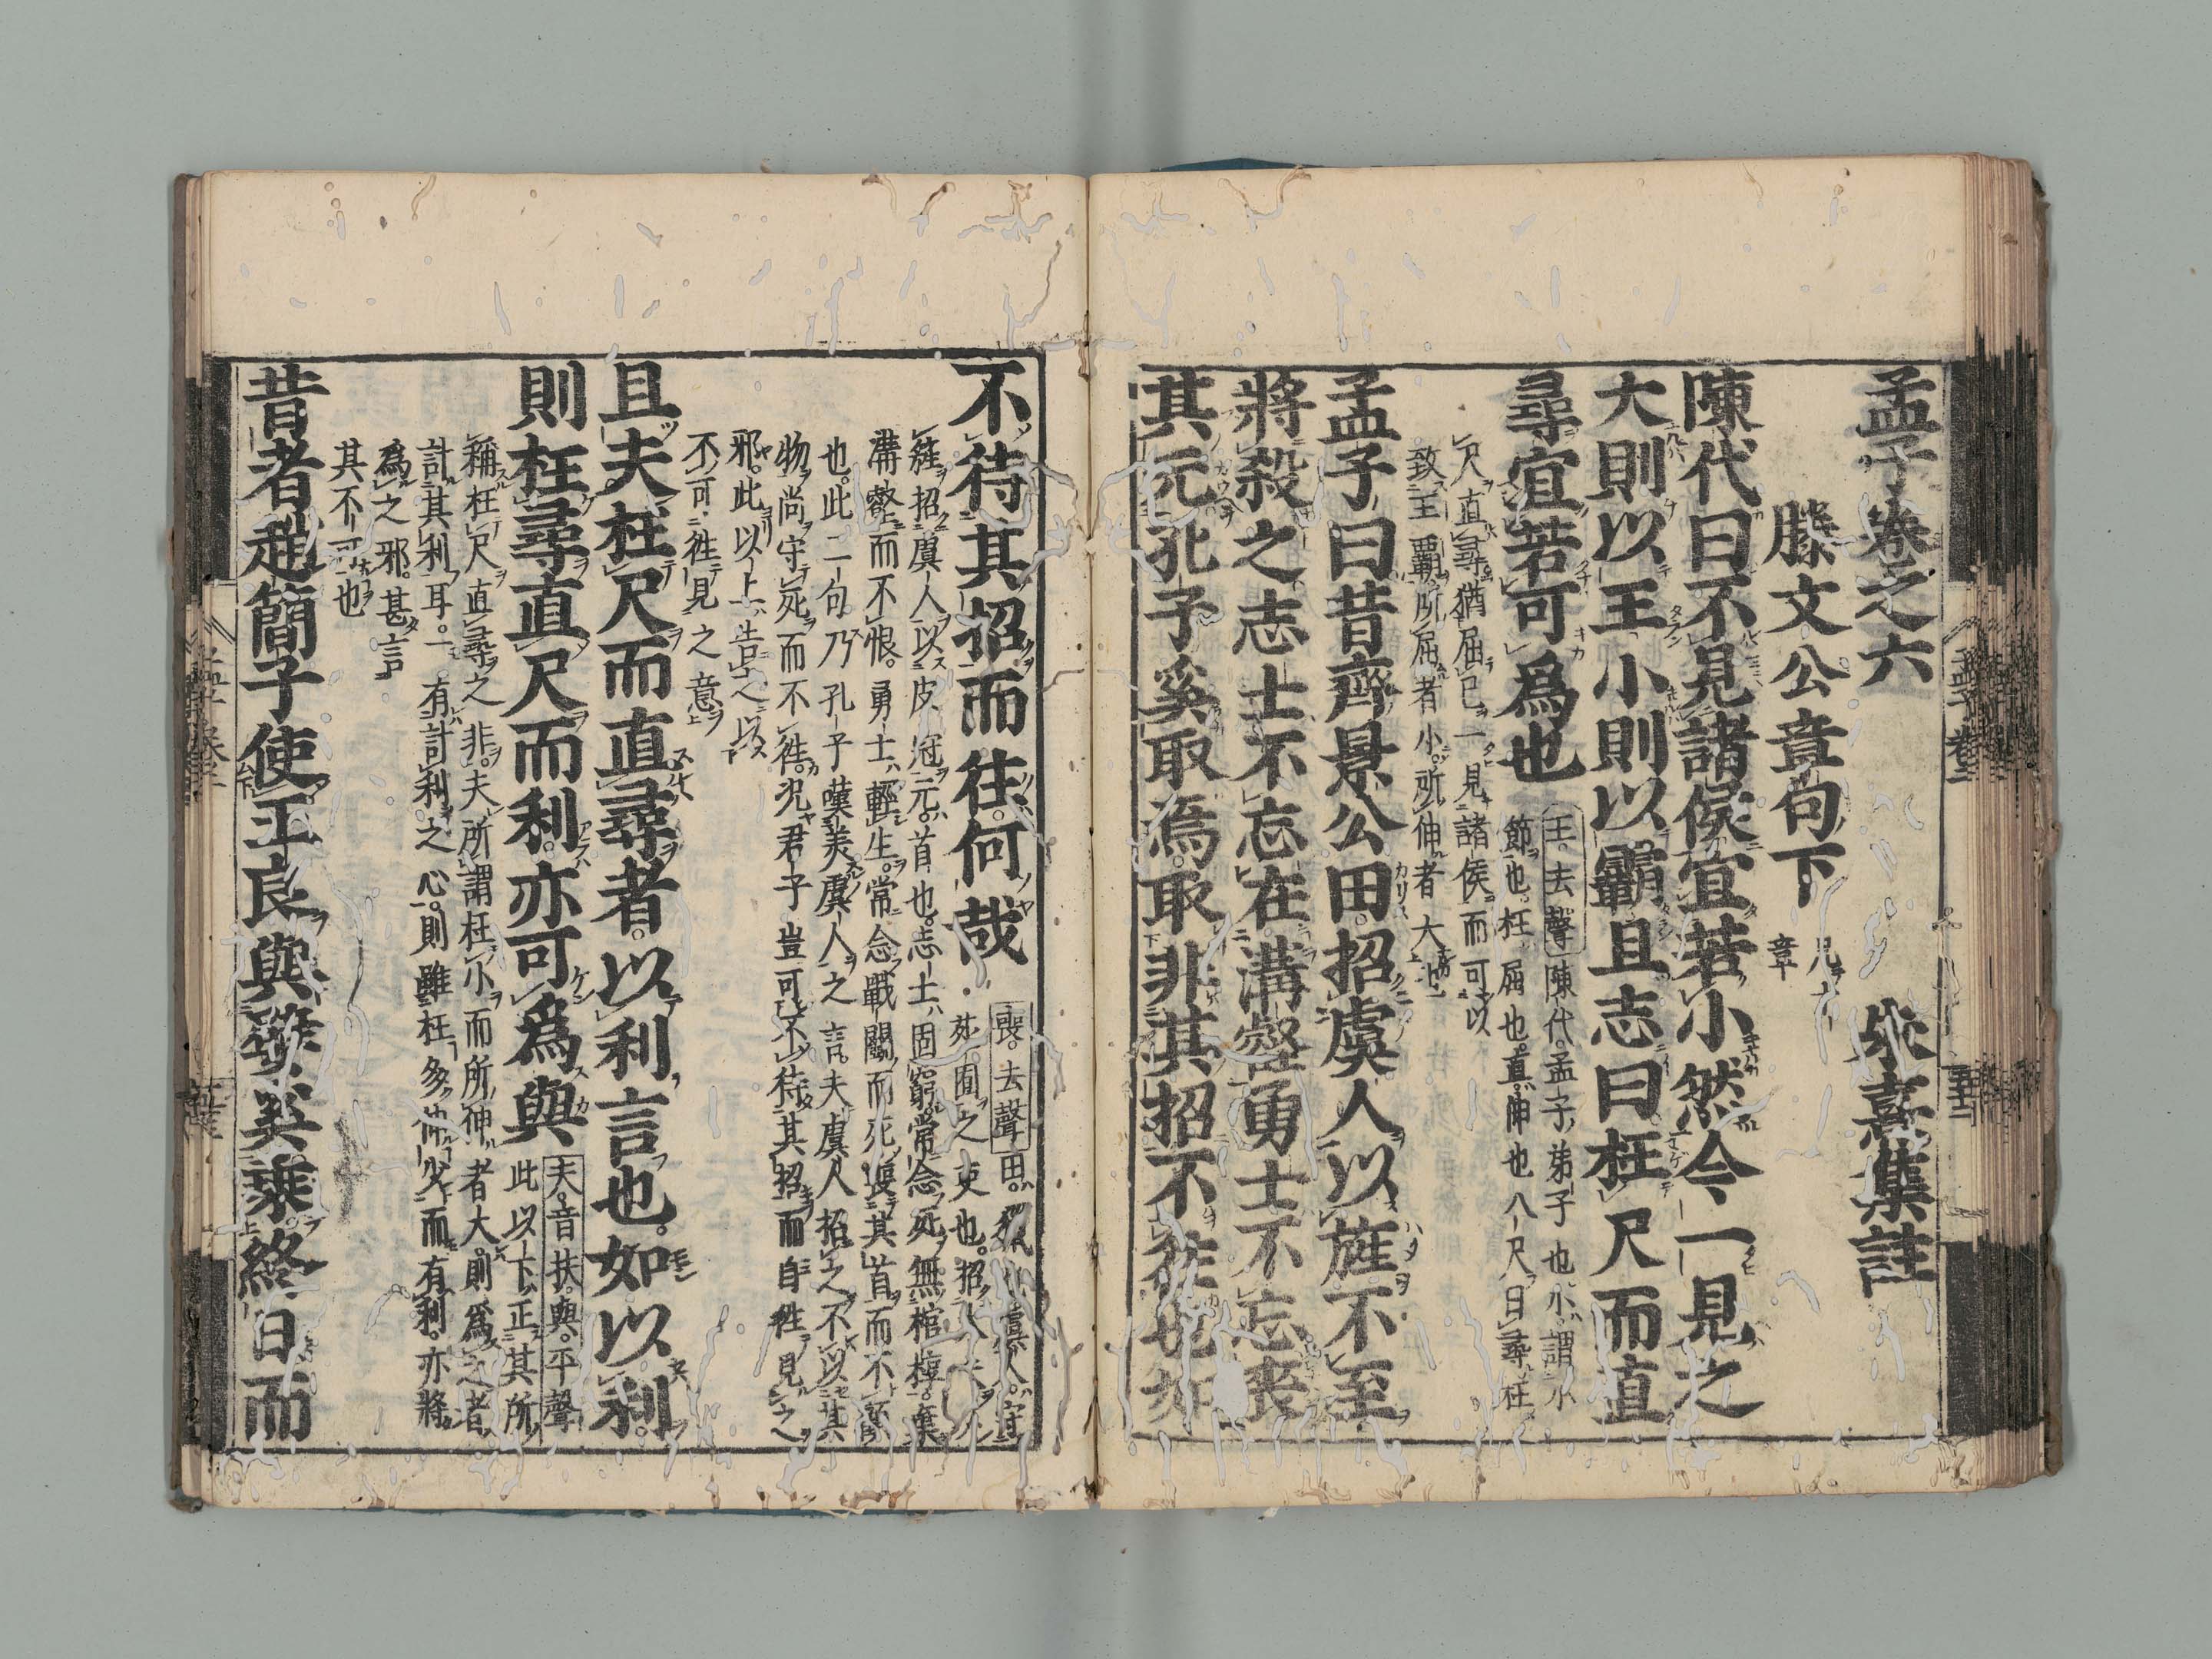 孟子卷之六　朱熹集註
滕文公章句下
凡十
章
陳代曰不見諸侯宜若小然今一見之
大則以王小則以霸且志曰枉尺而直
尋宜若可爲也
王去聲陳代孟子弟子也小謂小
節也枉屈也直伸也八尺曰尋枉
尺直尋猶屈己一見諸侯而可以
致王霸所屈者小所伸者大也
孟子曰昔齊景公田招虞人以旌不至
將殺之志士不忘在溝壑勇士不忘喪
其元孔子奚取焉取非其招不往也如
不待其招而往何哉
喪去聲田獵也虞人守
苑囿之吏也招大夫以
旌招虞人以皮冠元首也志士固窮常念死無棺槨棄
溝壑而不恨勇士輕生常念戰鬭而死喪其首而不顧
也此二句乃孔子嘆美虞人之言夫虞人招之不以其
物尚守死而不往況君子豈可不待其招而自往見之
邪此以上告之以
不可往見之意
且夫枉尺而直尋者以利言也如以利
則枉尋直尺而利亦可爲與
夫音扶與平聲
此以下正其所
稱枉尺直尋之非夫所謂枉小而所伸者大則爲之者
計其利耳一有計利之心則雖枉多伸少而有利亦將
爲之邪甚言
其不可也
昔者趙簡子使王良與嬖奚乘終日而